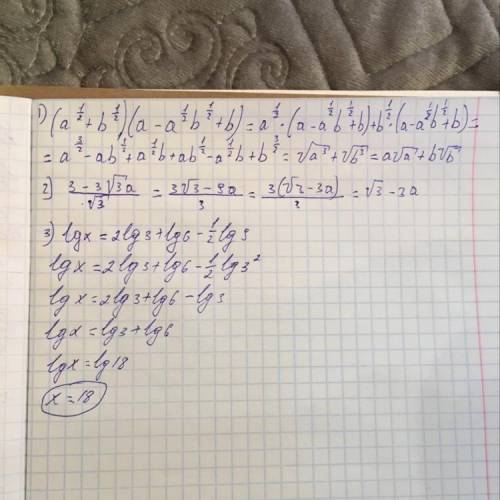 1) (a^{1/2} + b^{1/2})(a - a^{1/2}b^{1/2} + b) = a^{1/2}·(a - a^{1/2}b^{1/2} + b) + b^{1/2}·(a - a^{1/2}b^{1/2} + b) =
= a^{3/2} - ab^{1/2} + a^{1/2}b + ab^{1/2} - a^{1/2}b + b^{3/2} = √a³ + √b³ = a√a + b√b
2) (3 - 3√3a)/√3 = (3√3 - 9a)/3 = 3(√3 - 3a)/3 = √3 - 3a
3) lgx = 2lg3 + lg6 - 1/2 lg9
lgx = 2lg3 + lg6 - 1/2 lg3²
lgx = 2lg3 + lg6 - lg3
lgx = lg3 + lg6
lgx = lg18
x = 18